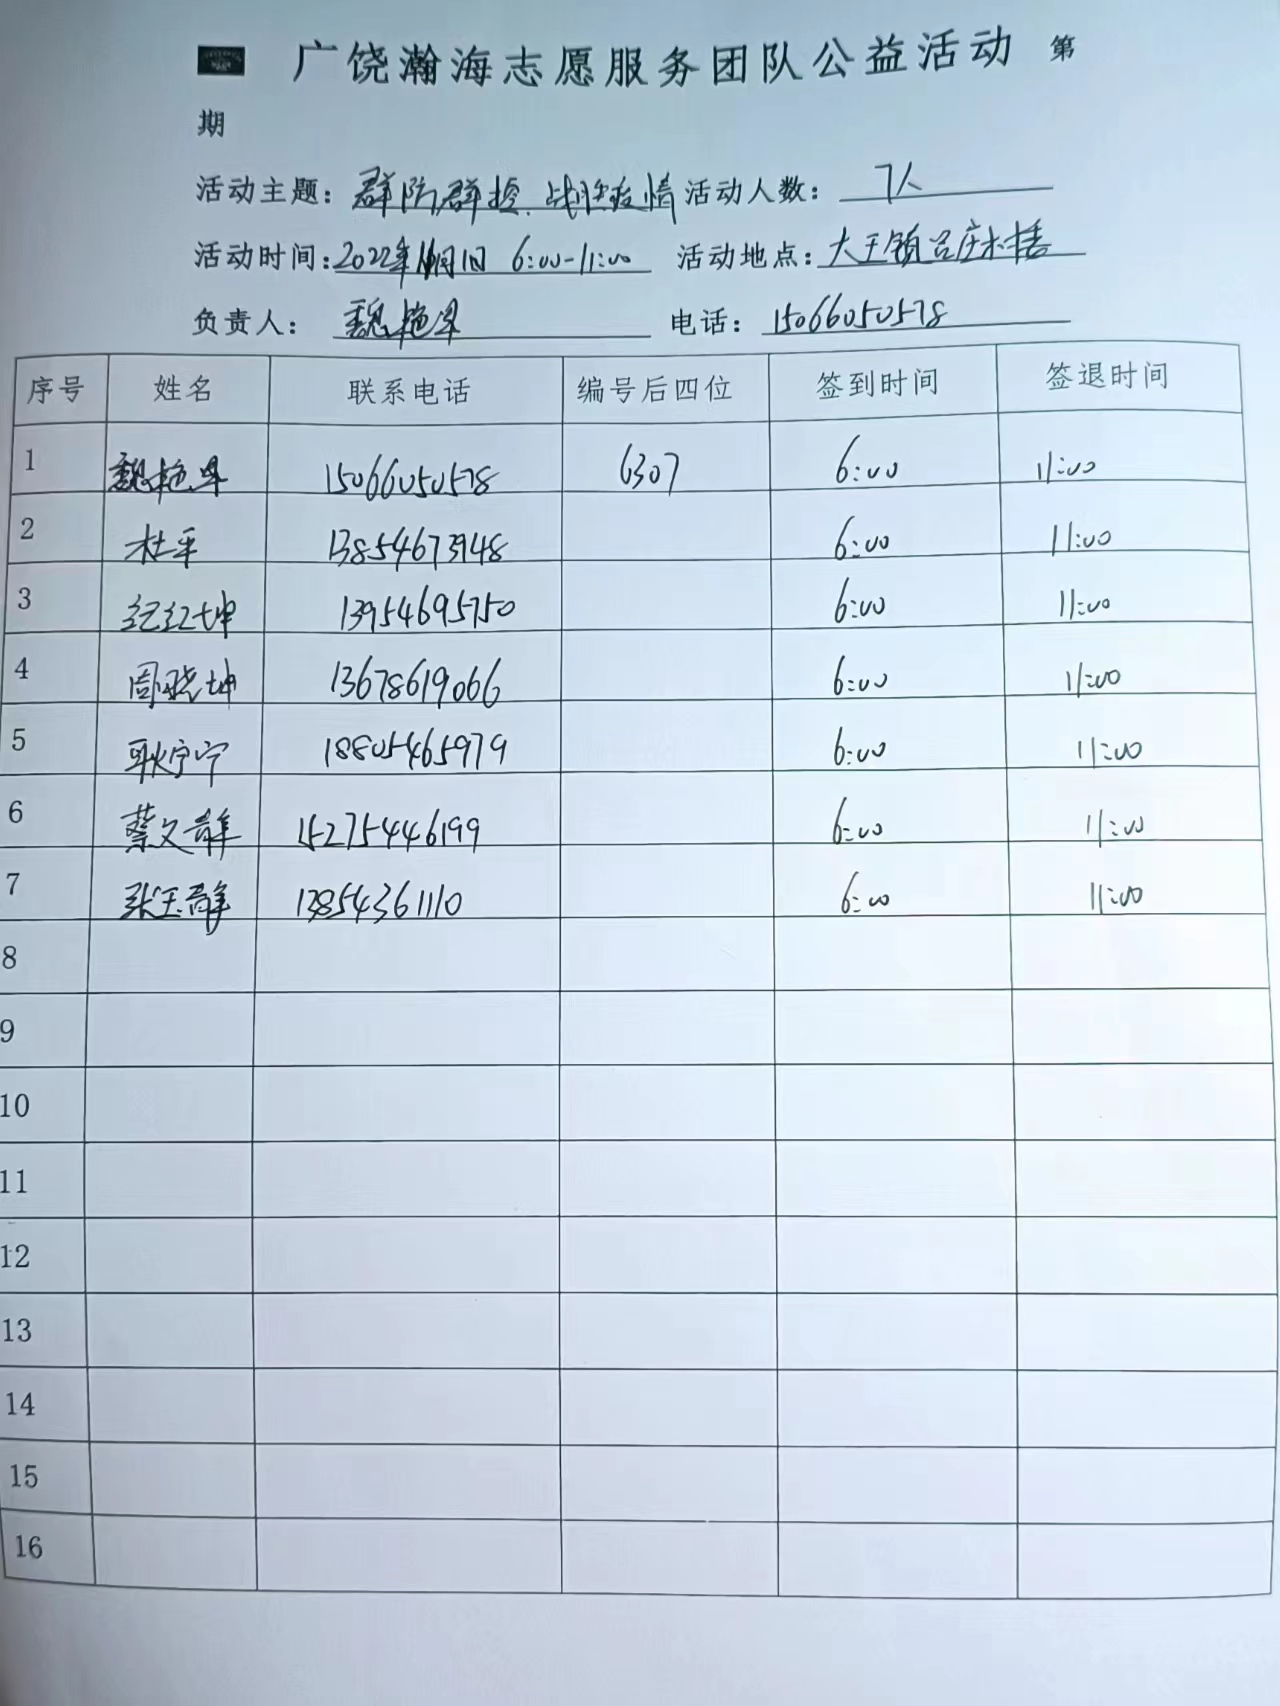 广饶瀚海志愿服务团队公益活动 第
期
活动主题：群防群控、战胜疫情 活动人数：7人
活动时间：2022年 月1日 6:00-11:00 活动地点：大王镇吕庄村
负责人：魏艳军 电话：15066050578
序号 姓名 联系电话 编号后四位 签到时间 签退时间
1 魏艳军 15066050578 6307 6:00 11:00
2 杜平 13854673948 6:00 11:00
3 纪红坤 13954695750 6:00 11:00
4 周晓坤 13678619066 6:00 11:00
5 耿宁宁 18805465979 6:00 11:00
6 蔡文静 15275446199 6:00 11:00
7 张玉静 13854361110 6:00 11:00
8
9
10
11
12
13
14
15
16